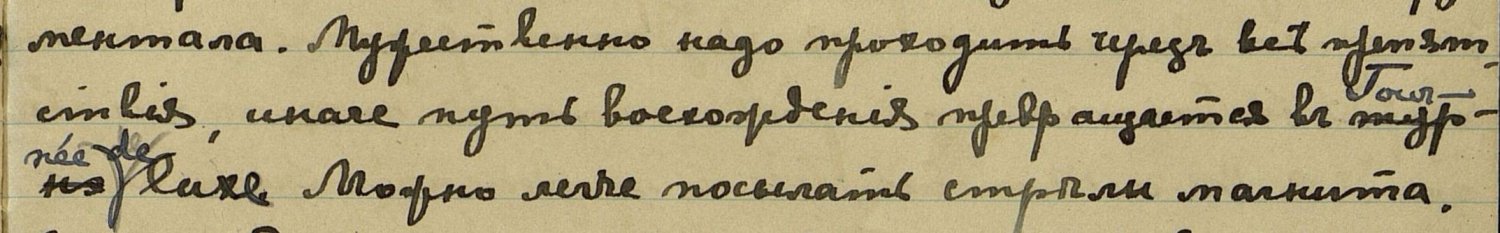 ментала. Мужественно надо проходить чрезъ всѣ препят-
ствія, иначе путь восхожденія превращается въ тур- Tour-
нэ née de luxe Можно легче посылать стрѣлы магнита.